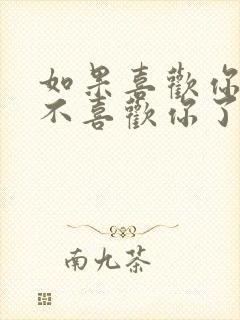 如果喜歡你
不喜歡你了
南九茶